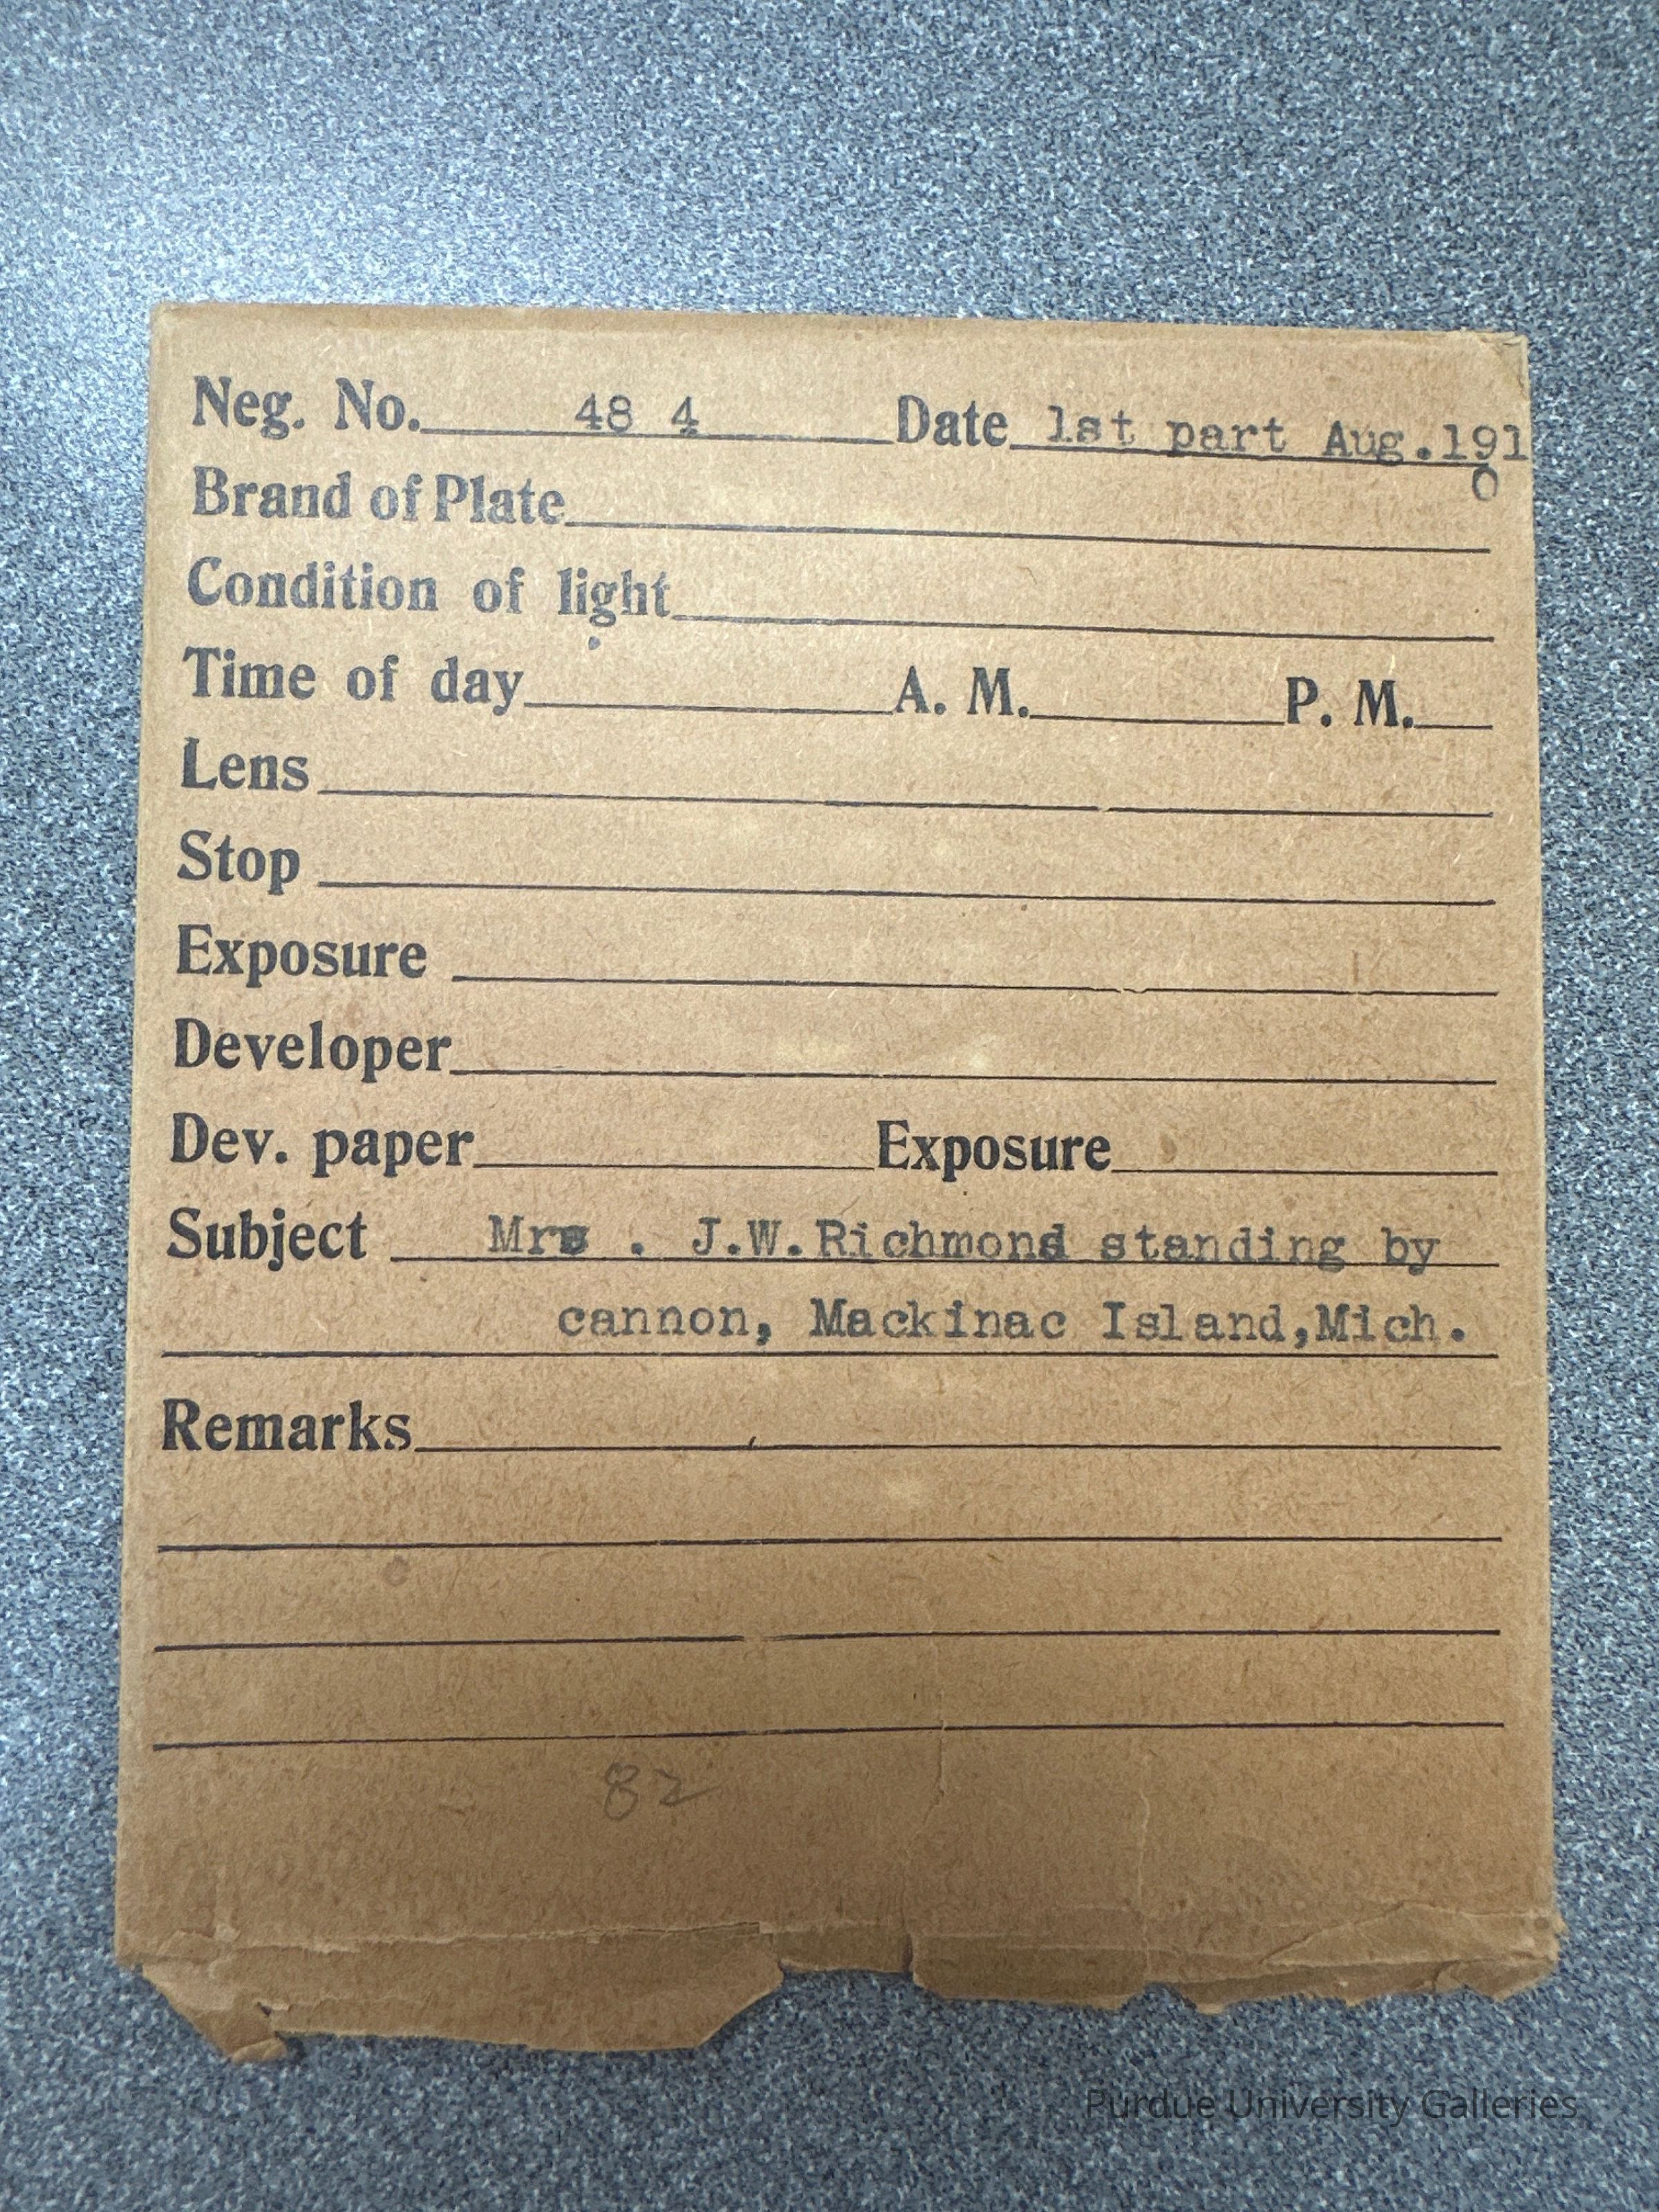 Neg. No. 48 4 Date 1st part Aug.191
0
Brand of Plate
Condition of light
Time of day A. M. P. M.
Lens
Stop
Exposure
Developer
Dev. paper Exposure
Subject Mrs . J.W.Richmond standing by
cannon, Mackinac Island,Mich.
Remarks
82
Purdue University Galleries